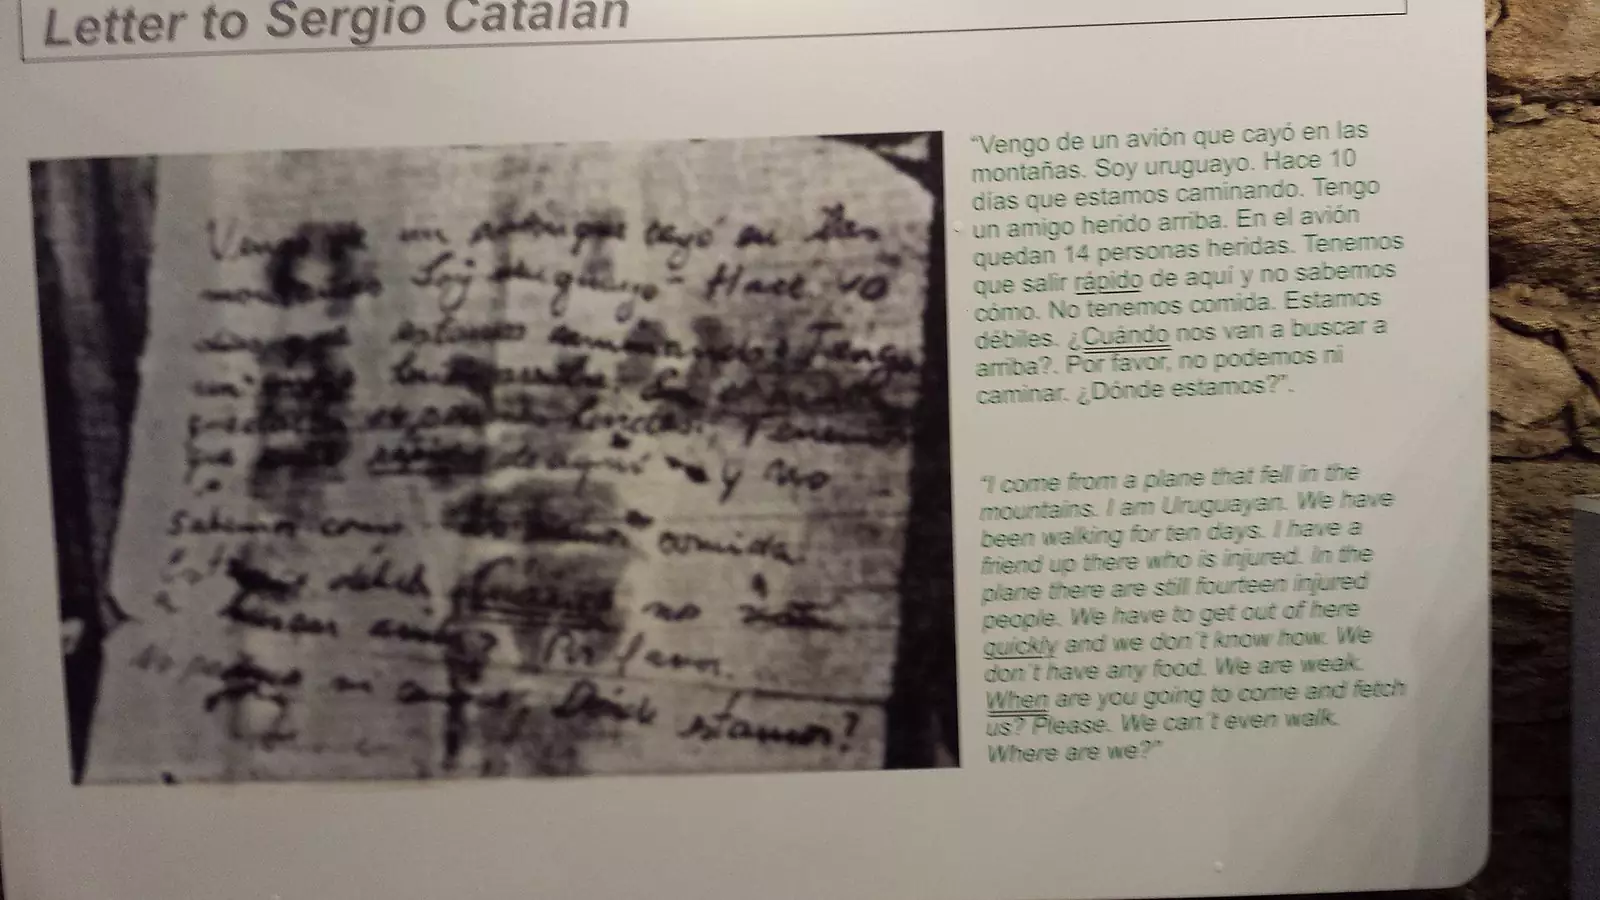 Letter to Sergio Catalán
Vengo de un avión que cayó en las
montañas. Soy uruguayo. Hace 10
días que estamos caminando. Tengo
un amigo herido arriba. En el avión
quedan 14 personas heridas. Tenemos
que salir rápido de aquí y no
sabemos como. No tenemos comida.
Estamos débiles. Cuándo nos van
a buscar arriba? Por favor.
No podemos ni caminar. Dónde estamos?
“Vengo de un avión que cayó en las
montañas. Soy uruguayo. Hace 10
días que estamos caminando. Tengo
un amigo herido arriba. En el avión
quedan 14 personas heridas. Tenemos
que salir rápido de aquí y no sabemos
cómo. No tenemos comida. Estamos
débiles. ¿Cuándo nos van a buscar a
arriba?. Por favor, no podemos ni
caminar. ¿Dónde estamos?”.
“I come from a plane that fell in the
mountains. I am Uruguayan. We have
been walking for ten days. I have a
friend up there who is injured. In the
plane there are still fourteen injured
people. We have to get out of here
quickly and we don´t know how. We
don´t have any food. We are weak.
When are you going to come and fetch
us? Please. We can´t even walk.
Where are we?”